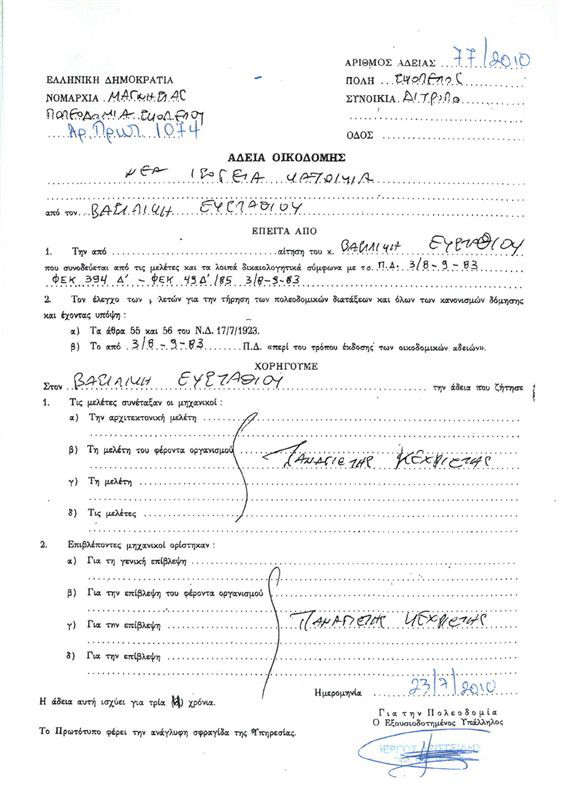 ΑΡΙΘΜΟΣ ΑΔΕΙΑΣ 77/2010
ΕΛΛΗΝΙΚΗ ΔΗΜΟΚΡΑΤΙΑ
ΠΟΛΗ ΣΚΟΠΕΛΟΣ
ΝΟΜΑΡΧΙΑ ΜΑΓΝΗΣΙΑΣ
ΣΥΝΟΙΚΙΑ ΔΙΤΡΟΠΟ
ΠΟΛΕΟΔΟΜΙΑ ΣΚΟΠΕΛΟΥ
Αρ. Πρωτ. 1074
ΟΔΟΣ
ΑΔΕΙΑ ΟΙΚΟΔΟΜΗΣ
ΝΕΑ ΙΣΟΓΕΙΑ ΚΑΤΟΙΚΙΑ
από τον ΒΑΣΙΛΙΚΗ ΕΥΣΤΑΘΙΟΥ
ΕΠΕΙΤΑ ΑΠΟ
1. Την από αίτηση του κ. ΒΑΣΙΛΙΚΗ ΕΥΣΤΑΘΙΟΥ
που συνοδεύεται από τις μελέτες και τα λοιπά δικαιολογητικά σύμφωνα με το Π.Δ. 3/8-9-83
ΦΕΚ 394 Δ' - ΦΕΚ 49Δ'/85 3/8-9-83
2. Τον έλεγχο των μ λετών για την τήρηση των πολεοδομικών διατάξεων και όλων των κανονισμών δόμησης
και έχοντας υπόψη :
α) Τα άθρα 55 και 56 του Ν.Δ. 17/7/1923.
β) Το από 3/8-9-83 Π.Δ. «περί του τρόπου έκδοσης των οικοδομικών αδειών».
ΧΟΡΗΓΟΥΜΕ
Στον ΒΑΣΙΛΙΚΗ ΕΥΣΤΑΘΙΟΥ την άδεια που ζήτησε
1. Τις μελέτες συνέταξαν οι μηχανικοί :
α) Την αρχιτεκτονική μελέτη
β) Τη μελέτη του φέροντα οργανισμού ΠΑΝΑΓΙΩΤΗΣ ΚΕΧΡΙΩΤΗΣ
γ) Τη μελέτη
δ) Τις μελέτες
2. Επιβλέποντες μηχανικοί ορίστηκαν :
α) Για τη γενική επίβλεψη
β) Για την επίβλεψη του φέροντα οργανισμού
γ) Για την επίβλεψη ΠΑΝΑΓΙΩΤΗΣ ΚΕΧΡΙΩΤΗΣ
δ) Για την επίβλεψη
Ημερομηνία 23/7/2010
Η άδεια αυτή ισχύει για τρία χρόνια.
Για την Πολεοδομία
Ο Εξουσιοδοτημένος Υπάλληλος
Το Πρωτότυπο φέρει την ανάγλυφη σφραγίδα της Υπηρεσίας.